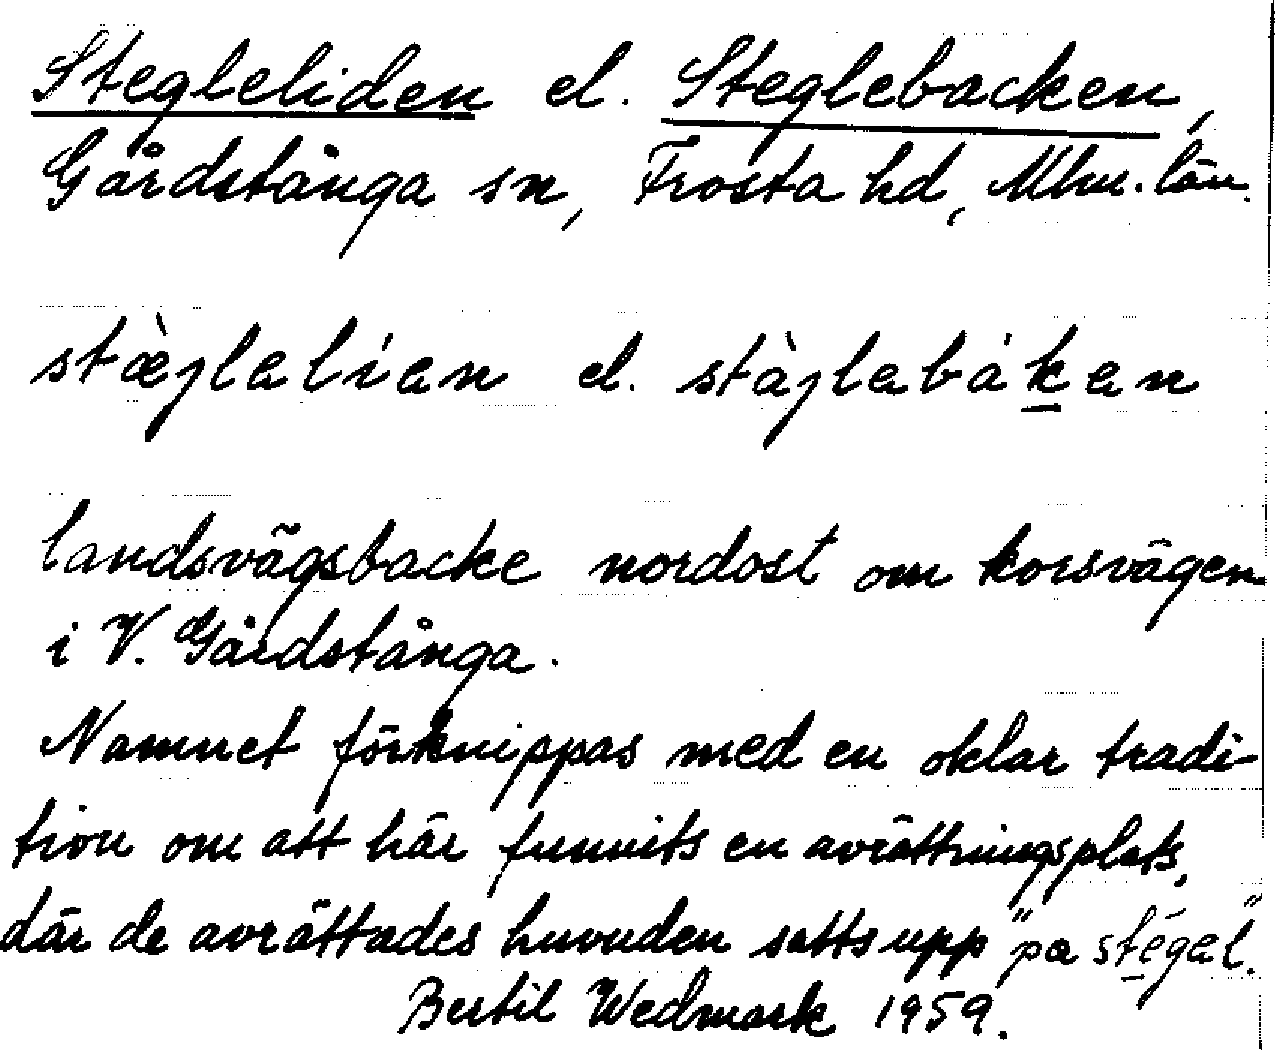 Stegleliden el. Steglebacken,
Gårdstånga sn, Frosta hd, Mlm. län.
stæ̀ȷlelíen el. stæ̀ȷlebák̲en
landsvägsbacke nordost om korsvägen
i V. Gårdstånga.
Namnet förknippas med en oklar tradi-
tion om att här funnits en avrättningsplats,
där de avrättades huvuden satts upp "pa stégel".
Bertil Wedmark 1959.